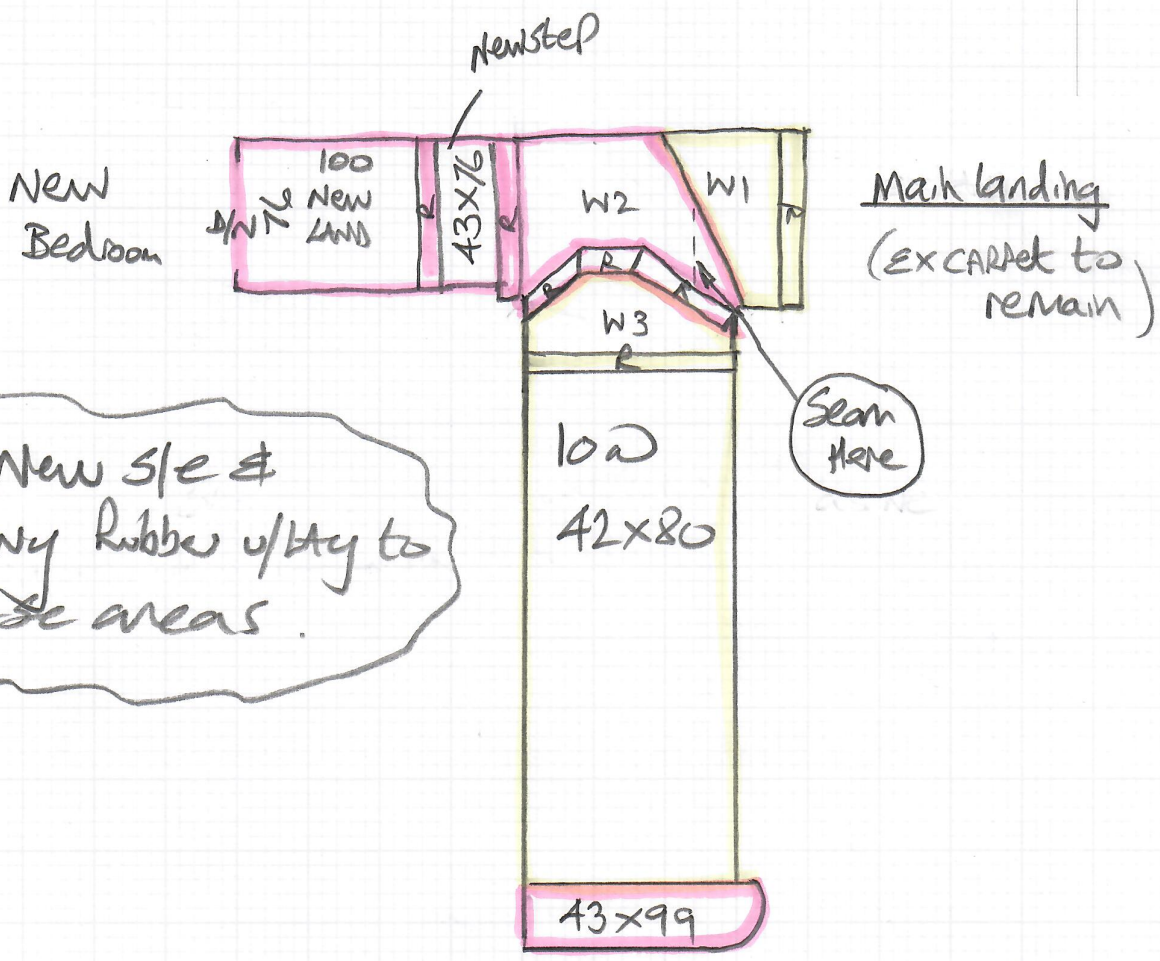 NewsteP
New
Bedroom
D/N Ne
100
New
LAND
R
43x76
R
W2
W1
R
Main landing
(EX CARPet to
remain)
R
R
R
W3
R
Seam
Here
10@
42x80
New S/e &
Ny Rubber u/LAy to
se areas.
43x99